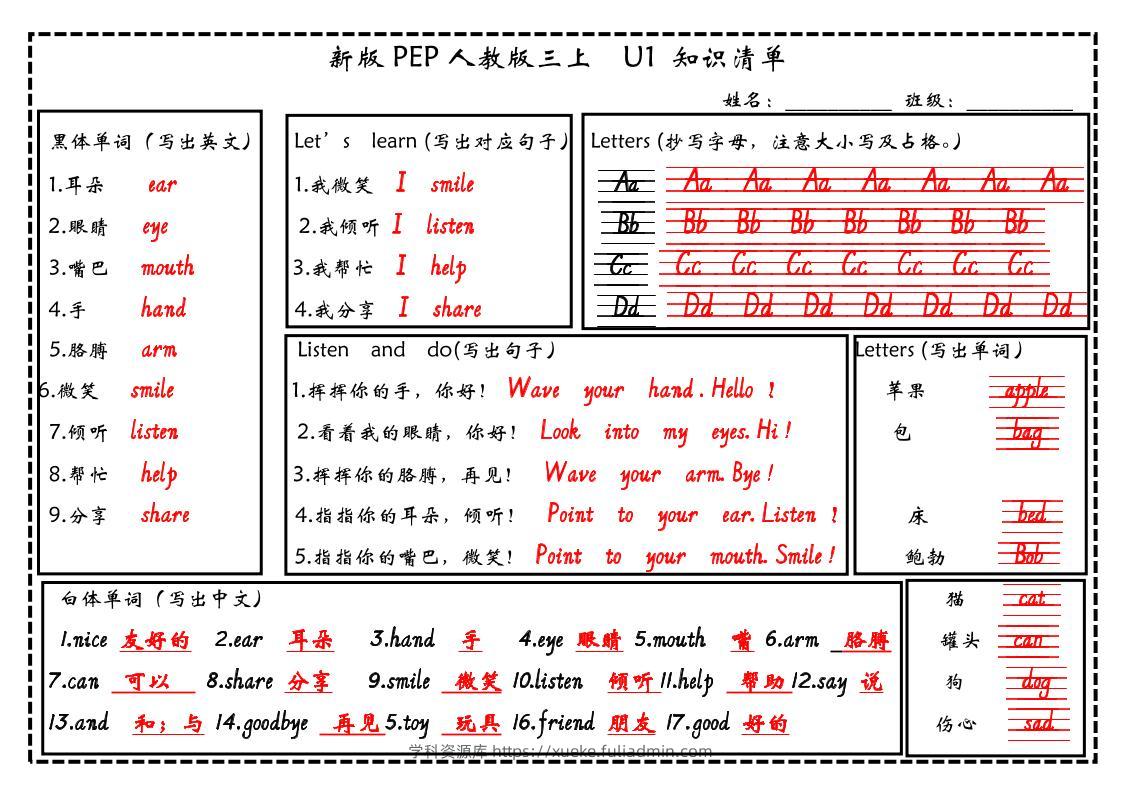 新版 PEP 人教版三上 U1 知识清单
姓名：__________ 班级：__________
黑体单词（写出英文）
1.耳朵 ear
2.眼睛 eye
3.嘴巴 mouth
4.手 hand
5.胳膊 arm
6.微笑 smile
7.倾听 listen
8.帮忙 help
9.分享 share
Let's learn (写出对应句子)
1.我微笑 I smile
2.我倾听 I listen
3.我帮忙 I help
4.我分享 I share
Letters (抄写字母，注意大小写及占格。)
Aa Aa Aa Aa Aa Aa Aa Aa
Bb Bb Bb Bb Bb Bb Bb Bb
Cc Cc Cc Cc Cc Cc Cc Cc
Dd Dd Dd Dd Dd Dd Dd Dd
Listen and do(写出句子)
1.挥挥你的手，你好！ Wave your hand. Hello !
2.看着我的眼睛，你好！ Look into my eyes. Hi !
3.挥挥你的胳膊，再见！ Wave your arm. Bye !
4.指指你的耳朵，倾听！ Point to your ear. Listen !
5.指指你的嘴巴，微笑！ Point to your mouth. Smile !
Letters (写出单词)
苹果 apple
包 bag
床 bed
鲍勃 Bob
猫 cat
罐头 can
狗 dog
伤心 sad
白体单词（写出中文）
1.nice 友好的 2.ear 耳朵 3.hand 手 4.eye 眼睛 5.mouth 嘴 6.arm _胳膊
7.can 可以 8.share 分享 9.smile 微笑 10.listen 倾听 11.help 帮助 12.say 说
13.and 和；与 14.goodbye 再见 5.toy 玩具 16.friend 朋友 17.good 好的
学科资源库 https://xueke.fuliadmin.com